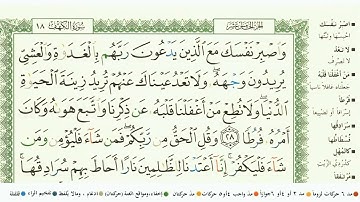 سُورَةُ الكَهْفِ ١٨
الجُزءُ الخَامِسَ عَشَرَ
وَاصْبِرْ نَفْسَكَ مَعَ الَّذِينَ يَدْعُونَ رَبَّهُم بِالْغَدَاةِ وَالْعَشِيِّ
يُرِيدُونَ وَجْهَهُ وَلَا تَعْدُ عَيْنَاكَ عَنْهُمْ تُرِيدُ زِينَةَ الْحَيَاةِ
الدُّنْيَا وَلَا تُطِعْ مَنْ أَغْفَلْنَا قَلْبَهُ عَن ذِكْرِنَا وَاتَّبَعَ هَوَاهُ وَكَانَ
أَمْرُهُ فُرُطًا ٢٨ وَقُلِ الْحَقُّ مِن رَّبِّكُمْ فَمَن شَاءَ فَلْيُؤْمِن وَمَن
شَاءَ فَلْيَكْفُرْ إِنَّا أَعْتَدْنَا لِلظَّالِمِينَ نَارًا أَحَاطَ بِهِمْ سُرَادِقُهَا
اصْبِرْ نَفْسَكَ
احبسها وثبتها
لَا تَعْدُ
لا تصرف
مَنْ أَغْفَلْنَا قَلْبَهُ
جعلناه غافلا ساهيا
فُرُطًا
سُرَادِقُهَا
كَالْمُهْلِ
مُرْتَفَقًا